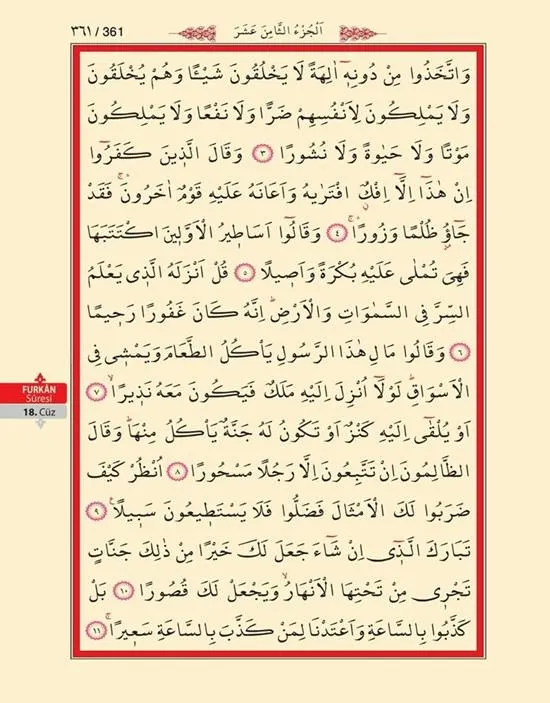 ٣٦١ / 361
اَلْجُزْءُ الثَّامِنَ عَشَرَ
وَاتَّخَذُوا مِنْ دُونِه۪ٓ اٰلِهَةً لَا يَخْلُقُونَ شَيْـًٔا وَهُمْ يُخْلَقُونَ
وَلَا يَمْلِكُونَ لِاَنْفُسِهِمْ ضَرًّا وَلَا نَفْعًا وَلَا يَمْلِكُونَ
مَوْتًا وَلَا حَيٰوةً وَلَا نُشُورًا ﴿٣﴾ وَقَالَ الَّذ۪ينَ كَفَرُٓوا
اِنْ هٰذَٓا اِلَّٓا اِفْكٌۨ افْتَرٰيهُ وَاَعَانَهُ عَلَيْهِ قَوْمٌ اٰخَرُونَۚ فَقَدْ
جَٓاؤُ۫ ظُلْمًا وَزُورًاۚ ﴿٤﴾ وَقَالُٓوا اَسَاط۪يرُ الْاَوَّل۪ينَ اكْتَتَبَهَا
فَهِيَ تُمْلٰى عَلَيْهِ بُكْرَةً وَاَص۪يلًا ﴿٥﴾ قُلْ اَنْزَلَهُ الَّذ۪ي يَعْلَمُ
السِّرَّ فِي السَّمٰوَاتِ وَالْاَرْضِۜ اِنَّهُ كَانَ غَفُورًا رَح۪يمًا
﴿٦﴾ وَقَالُوا مَالِ هٰذَا الرَّسُولِ يَأْكُلُ الطَّعَامَ وَيَمْش۪ي فِي
الْاَسْوَاقِۜ لَوْلَٓا اُنْزِلَ اِلَيْهِ مَلَكٌ فَيَكُونَ مَعَهُ نَذ۪يرًاۙ ﴿٧﴾
اَوْ يُلْقٰٓى اِلَيْهِ كَنْزٌ اَوْ تَكُونُ لَهُ جَنَّةٌ يَأْكُلُ مِنْهَاۜ وَقَالَ
الظَّالِمُونَ اِنْ تَتَّبِعُونَ اِلَّا رَجُلًا مَسْحُورًا ﴿٨﴾ اُنْظُرْ كَيْفَ
ضَرَبُوا لَكَ الْاَمْثَالَ فَضَلُّوا فَلَا يَسْتَط۪يعُونَ سَب۪يلًا۟ ﴿٩﴾
تَبَارَكَ الَّذ۪ٓي اِنْ شَٓاءَ جَعَلَ لَكَ خَيْرًا مِنْ ذٰلِكَ جَنَّاتٍ
تَجْر۪ي مِنْ تَحْتِهَا الْاَنْهَارُۙ وَيَجْعَلْ لَكَ قُصُورًا ﴿١٠﴾ بَلْ
كَذَّبُوا بِالسَّاعَةِ وَاَعْتَدْنَا لِمَنْ كَذَّبَ بِالسَّاعَةِ سَع۪يرًاۚ ﴿١١﴾
FURKÂN
Sûresi
18. Cüz